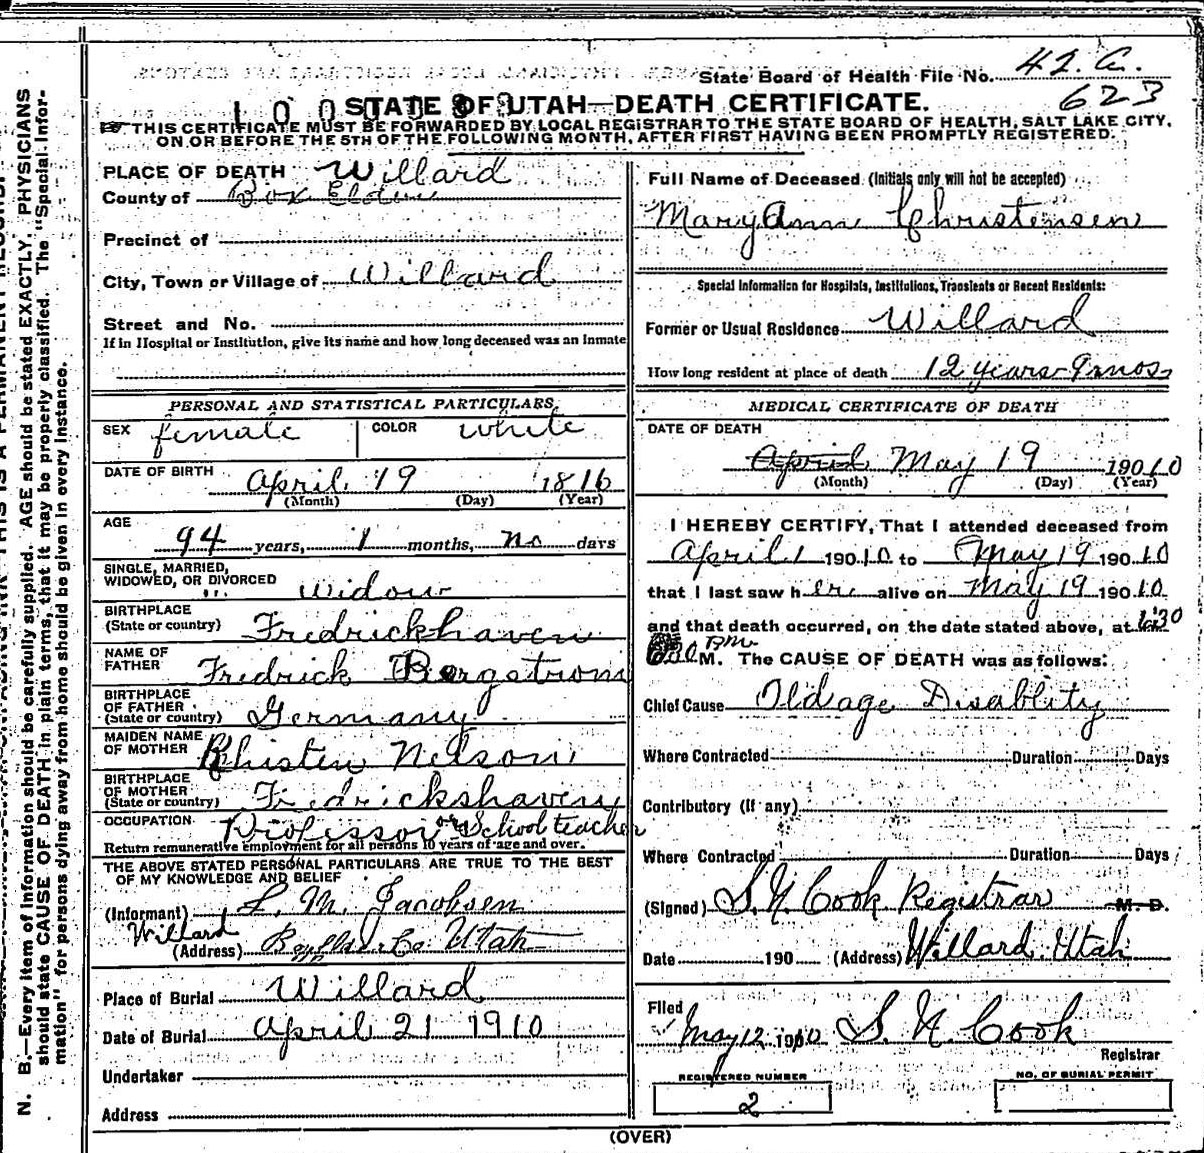 State Board of Health File No. 42. C.
623
STATE OF UTAH—DEATH CERTIFICATE.
THIS CERTIFICATE MUST BE FORWARDED BY LOCAL REGISTRAR TO THE STATE BOARD OF HEALTH, SALT LAKE CITY,
ON OR BEFORE THE 5TH OF THE FOLLOWING MONTH, AFTER FIRST HAVING BEEN PROMPTLY REGISTERED.
PLACE OF DEATH Willard
County of Box Elder
Precinct of
City, Town or Village of Willard
Street and No.
If in Hospital or Institution, give its name and how long deceased was an inmate
PERSONAL AND STATISTICAL PARTICULARS
SEX female COLOR white
DATE OF BIRTH April 19 1816
(Month) (Day) (Year)
AGE
94 years, 1 months, no days
SINGLE, MARRIED,
WIDOWED, OR DIVORCED widow
BIRTHPLACE
(State or country) Fredrickhaven
NAME OF
FATHER Fredrick Bergstrom
BIRTHPLACE
OF FATHER
(State or country) Germany
MAIDEN NAME
OF MOTHER Khisten Nelson
BIRTHPLACE
OF MOTHER
(State or country) Fredrickshaven
OCCUPATION Professor or School teacher
Return remunerative employment for all persons 10 years of age and over.
THE ABOVE STATED PERSONAL PARTICULARS ARE TRUE TO THE BEST
OF MY KNOWLEDGE AND BELIEF
(Informant) L. M. Jacobsen
Willard
(Address) Co. Utah
Place of Burial Willard
Date of Burial April 21 1910
Undertaker
Address
Full Name of Deceased (Initials only will not be accepted)
Mary Ann Christensen
Special Information for Hospitals, Institutions, Transients or Recent Residents:
Former or Usual Residence Willard
How long resident at place of death 12 years 9 mos
MEDICAL CERTIFICATE OF DEATH
DATE OF DEATH
April May 19 19010
(Month) (Day) (Year)
I HEREBY CERTIFY, That I attended deceased from
April 1 190 10 to May 19 190 10
that I last saw her alive on May 19 190 10
and that death occurred, on the date stated above, at 30
P.M. M. The CAUSE OF DEATH was as follows:
Chief Cause Old age Disablity
Where Contracted Duration Days
Contributory (If any)
Where Contracted Duration Days
(Signed) S. N. Cook Registrar M. D.
Date 190 (Address) Willard. Utah
Filed
May 12 1910 S. N. Cook
Registrar
REGISTERED NUMBER
2
NO. OF BURIAL PERMIT
(OVER)
N. B.—Every item of information should be carefully supplied. AGE should be stated EXACTLY. PHYSICIANS
should state CAUSE OF DEATH in plain terms, that it may be properly classified. The "Special Infor-
mation" for persons dying away from home should be given in every instance.